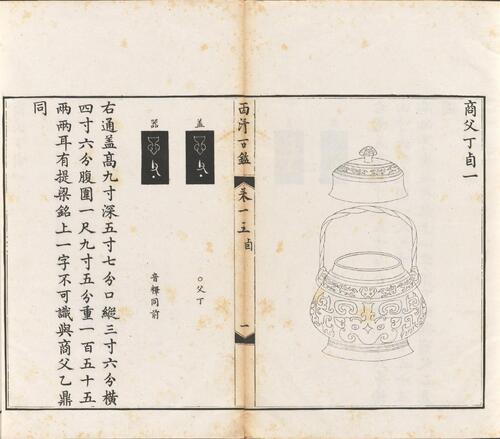 商父丁卣一
西清古鑑
卷一五 卣
一
蓋
○父丁
器
音釋同前
右通蓋高九寸深五寸七分口縱三寸六分橫
四寸六分腹圍一尺九寸五分重一百五十五
兩兩耳有提梁銘上一字不可識與商父乙鼎
同